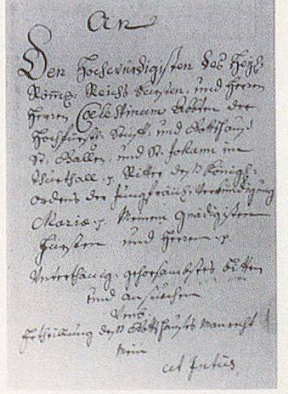 An
Den Hochwürdigisten des Heyl:
Röm: Reichs Fürsten, und Herren
Herren Cœlestinum Abbten der
Hochfürstl: Stüfft, und Gottshaus
St. Gallen, und St. Johann im
Thurthall, Ritter des Königl:
Ordens der Jungfräul: Verkündigung
Mariæ, Meinem Gnädigsten
Fürsten und Herren
Unterthänig gehorsambstes Bitten
und ansuchen
Umb
Ertheillung des Gottshauses Mannrecht
Mein
ut Intus